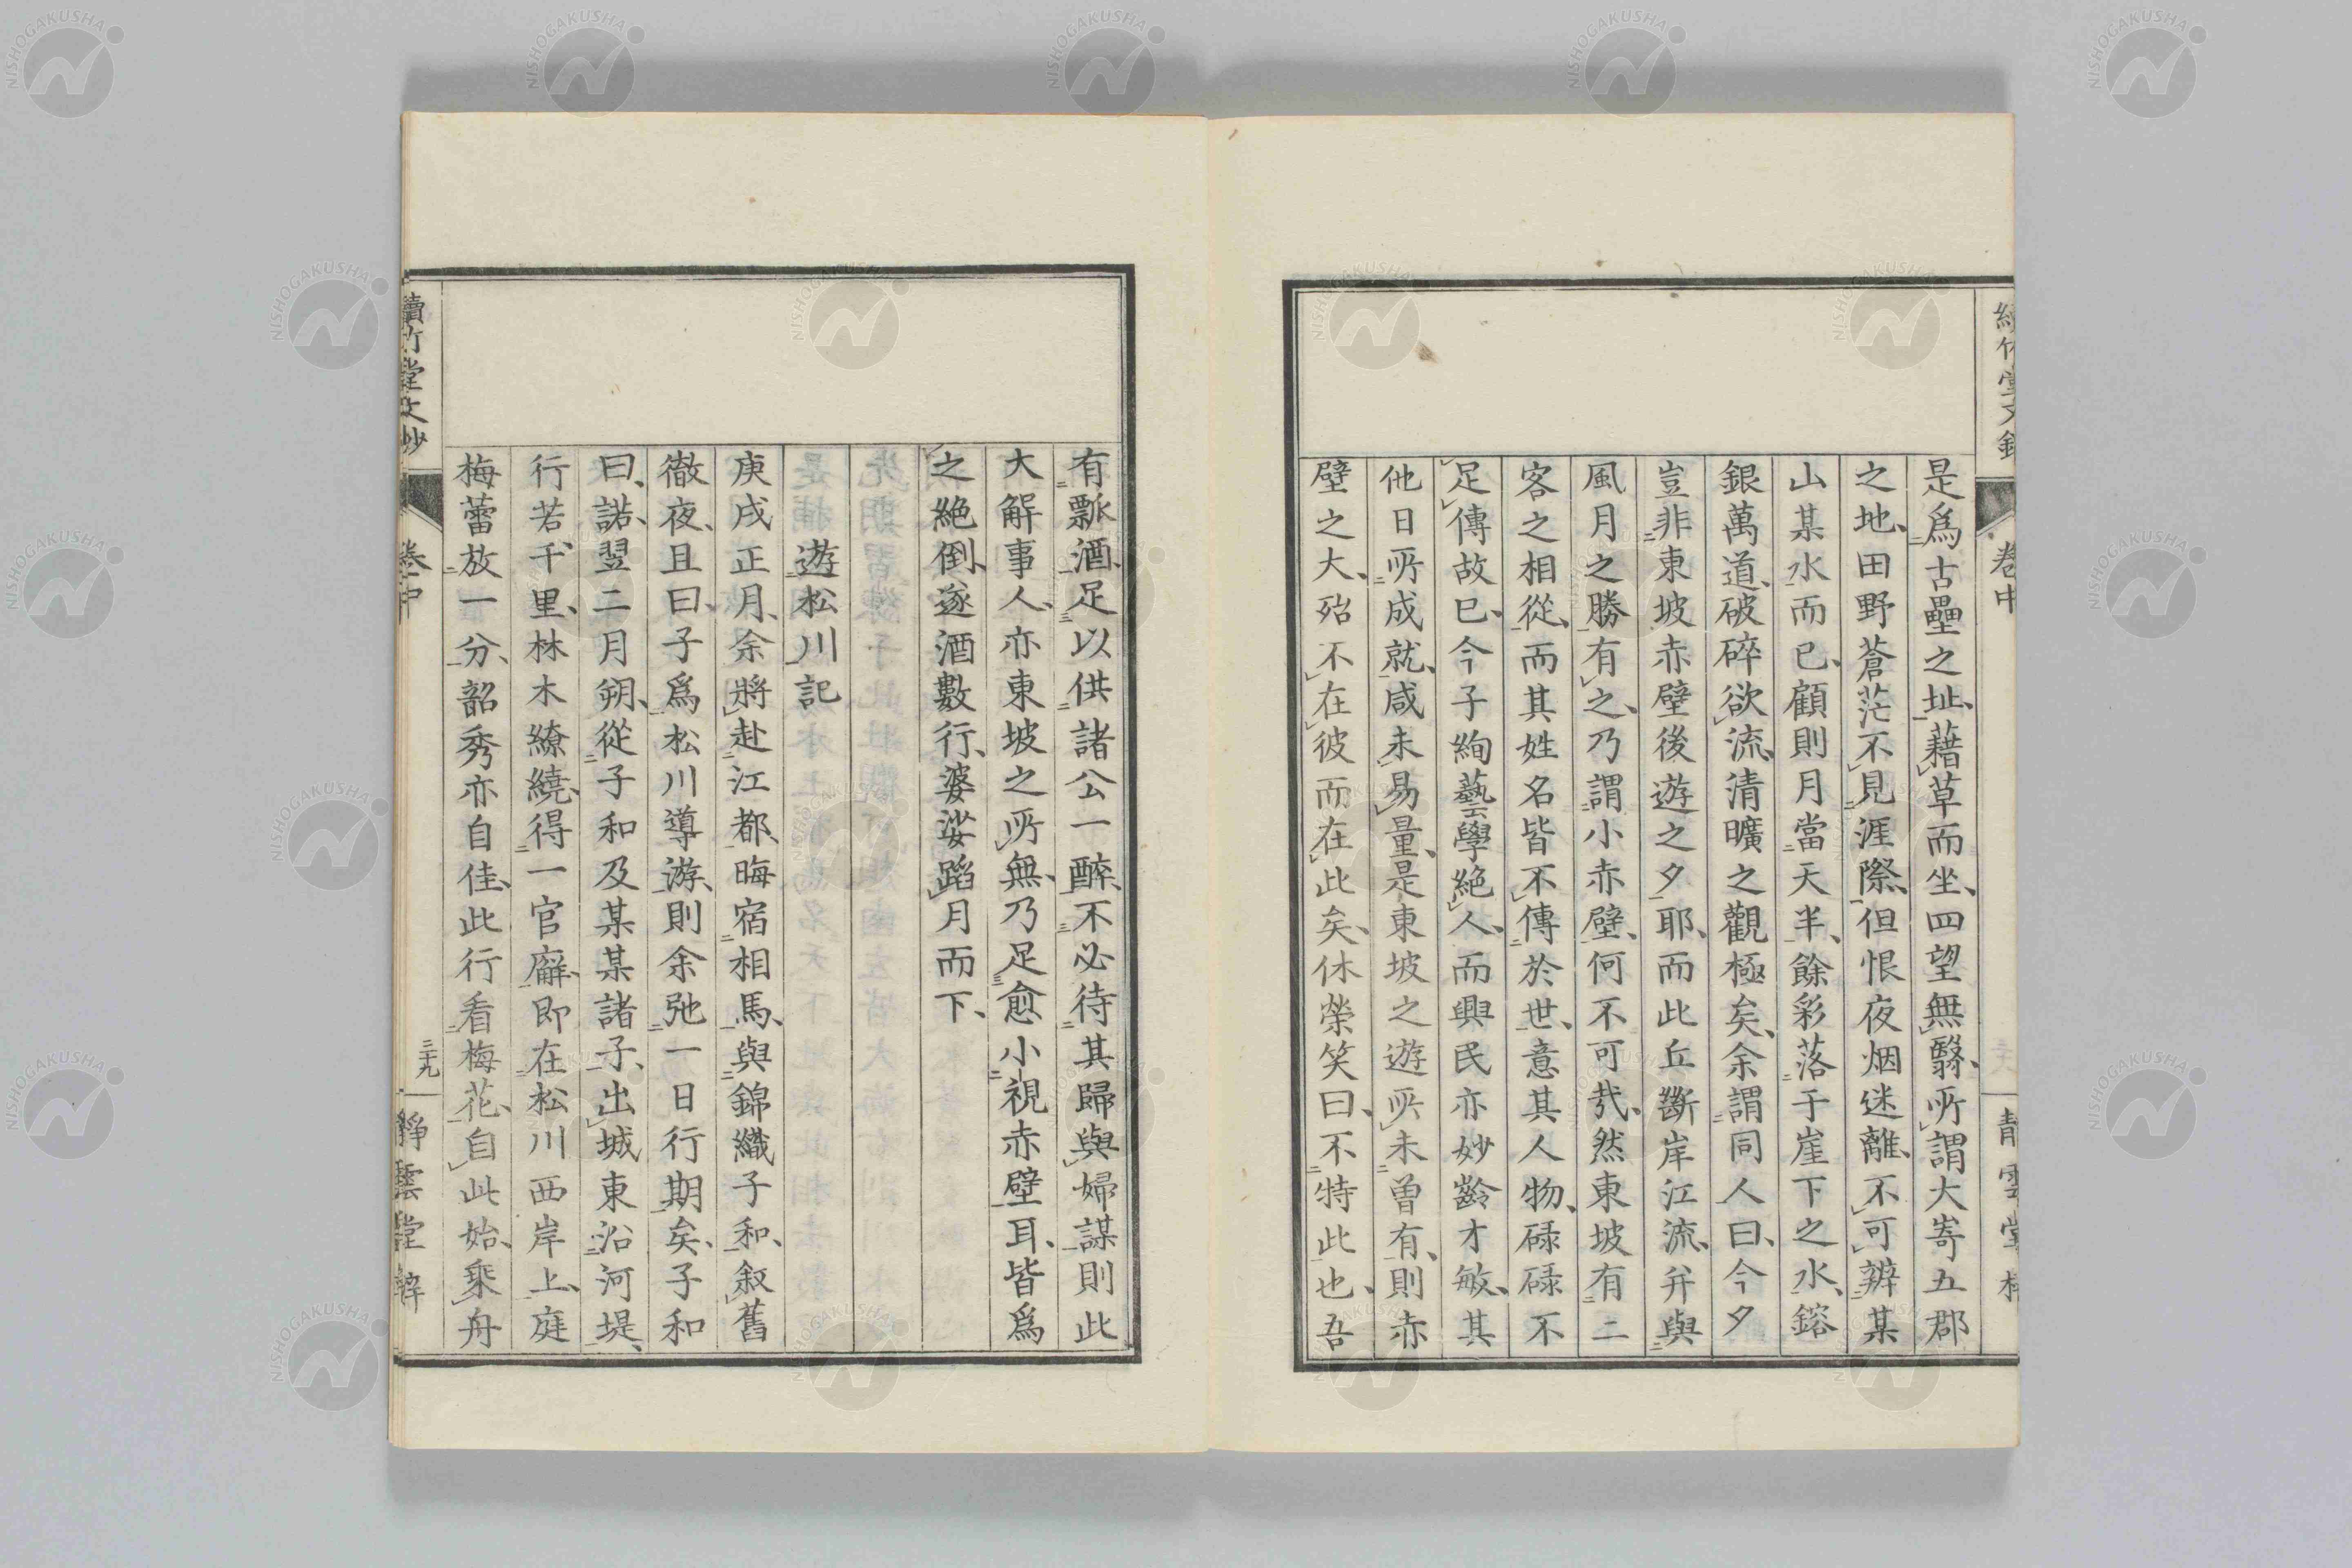 是爲古壘之址、藉草而坐、四望無翳、所謂大嵜五郡
之地、田野蒼茫不見涯際、但恨夜烟迷離、不可辨某
山某水而已、顧則月當天半、餘彩落于崖下之水、鎔
銀萬道、破碎欲流、清曠之觀極矣、余謂同人曰、今夕
豈非東坡赤壁後遊之夕耶、而此丘斷岸江流、幷與
風月之勝有之、乃謂小赤壁、何不可哉、然東坡有二
客之相從、而其姓名皆不傳於世、意其人物、碌碌不
足傳故已、今子絢藝學絶人、而興民亦妙齡才敏、其
他日所成就、咸未易量、是東坡之遊所未曽有、則赤
壁之大、殆不在彼而在此矣、休榮笑曰、不特此也、吾
有瓢酒、足以供諸公一醉、不必待其歸與婦謀則此
大解事人、亦東坡之所無、乃足愈小視赤壁耳、皆爲
之絶倒、逐酒數行、婆娑蹈月而下、
遊松川記
庚戌正月、余將赴江都、晦宿相馬、與錦織子和、叙舊
徹夜、且曰、子爲松川導游、則余弛一日行期矣、子和
曰、諾、翌二月朔、從子和及某某諸子、出城東沿河堤、
行若干里、林木繚繞、得一官廨、即在松川西岸上、庭
梅蕾放一分、韶秀亦自佳、此行看梅花、自此始、乗舟
讀竹堂文鈔
卷中
三十九
靜雲堂梓